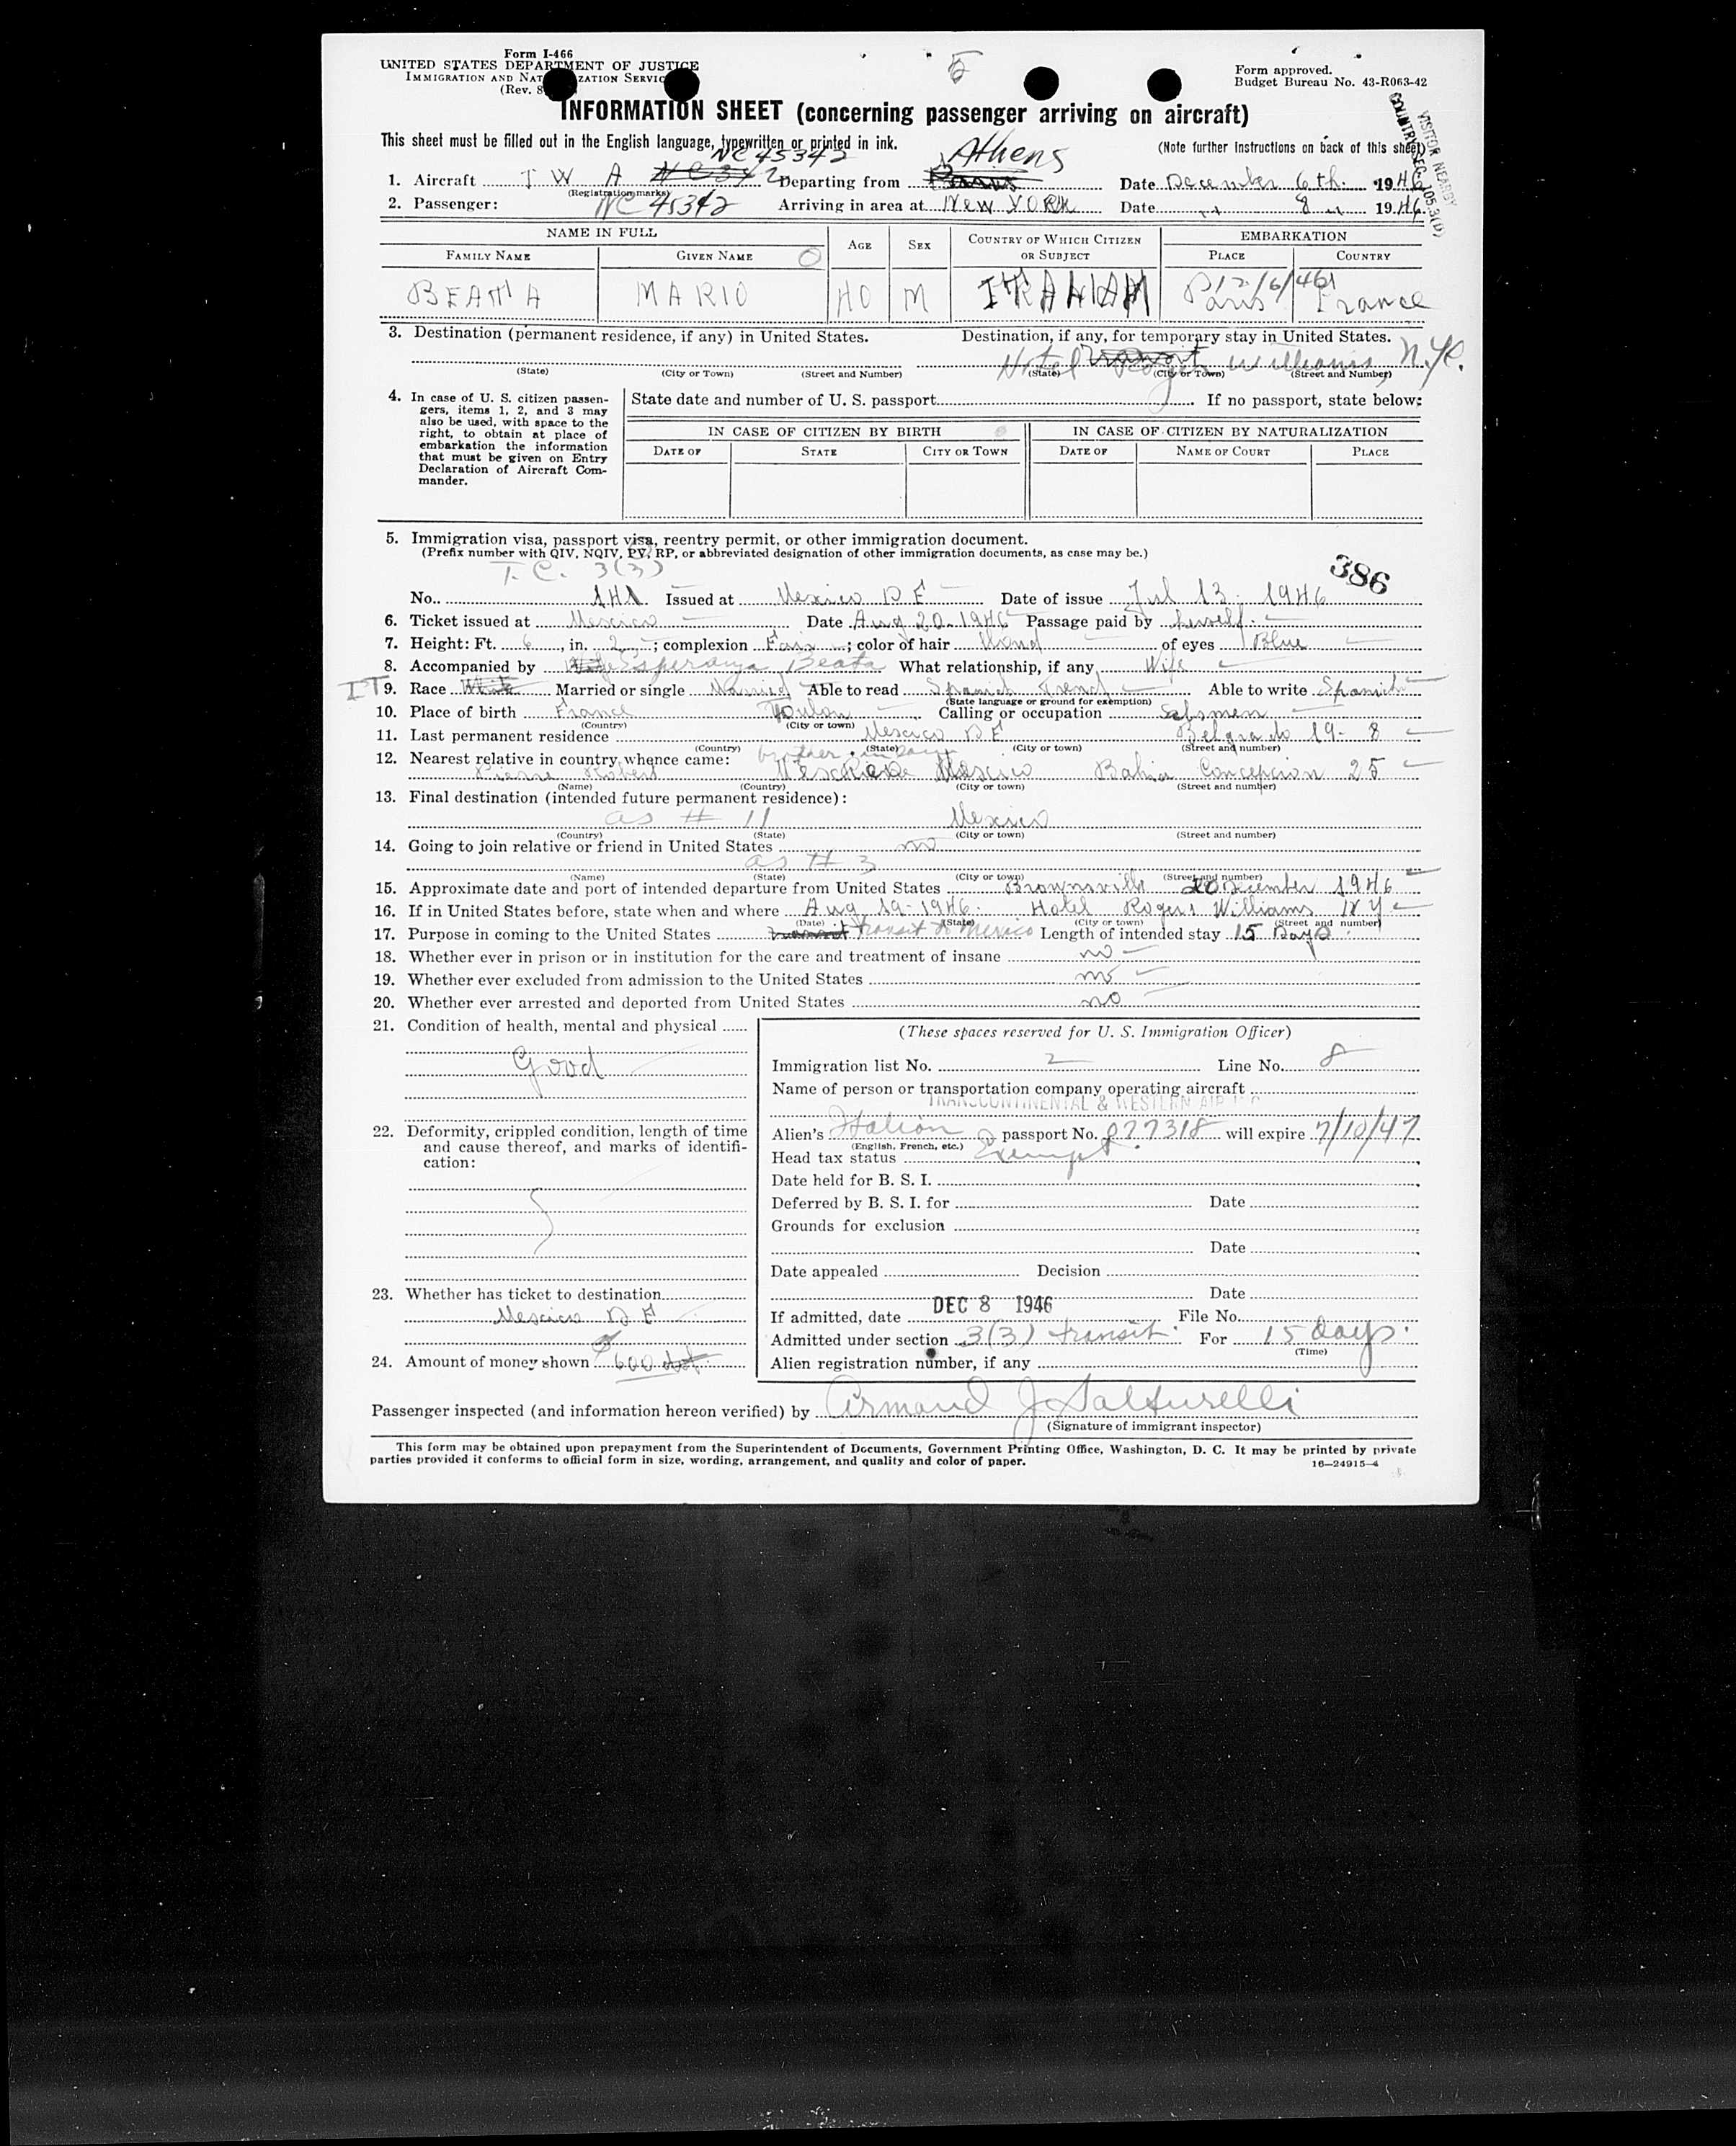 Form I-466
UNITED STATES DEPARTMENT OF JUSTICE
IMMIGRATION AND NAT ZATION SERVIC
(Rev. 8
5
Form approved.
Budget Bureau No. 43-R063-42
INFORMATION SHEET (concerning passenger arriving on aircraft)
This sheet must be filled out in the English language, typewritten or printed in ink.
(Note further instructions on back of this sheet)
VISITOR NEARBY
NC 45342 Athens
1. Aircraft T W A NC 342 Departing from Paris Date December 6th. 1946
(Registration marks)
2. Passenger: NC 45342 Arriving in area at NEW YORK Date " 8 " 1946
NAME IN FULL AGE SEX COUNTRY OF WHICH CITIZEN OR SUBJECT EMBARKATION
FAMILY NAME GIVEN NAME PLACE COUNTRY
12/6/46
BEATA MARIO 40 M ITALIAN Paris France
3. Destination (permanent residence, if any) in United States. Destination, if any, for temporary stay in United States.
transit
Hotel Roger Williams, N.Y.C.
(State) (City or Town) (Street and Number) (State) (City or Town) (Street and Number)
4. In case of U. S. citizen passengers, items 1, 2, and 3 may also be used, with space to the right, to obtain at place of embarkation the information that must be given on Entry Declaration of Aircraft Commander.
State date and number of U. S. passport If no passport, state below:
IN CASE OF CITIZEN BY BIRTH IN CASE OF CITIZEN BY NATURALIZATION
DATE OF STATE CITY OR TOWN DATE OF NAME OF COURT PLACE
5. Immigration visa, passport visa, reentry permit, or other immigration document.
(Prefix number with QIV, NQIV, PV, RP, or abbreviated designation of other immigration documents, as case may be.)
T. C. 3(3)
386
No. 141 Issued at Mexico D F Date of issue Jul 13 - 1946
6. Ticket issued at Mexico Date Aug 20 - 1946 Passage paid by
7. Height: Ft. 6, in. 2; complexion Fair; color of hair blond of eyes Blue
8. Accompanied by Esperanza Beata What relationship, if any Wife
IT 9. Race White Married or single Married Able to read Spanish French Able to write Spanish
(State language or ground for exemption)
10. Place of birth France Toulon Calling or occupation Salsmen
(Country) (City or town)
11. Last permanent residence Mexico D F Belgrado 19 - 8
(Country) (State) (City or town) (Street and number)
12. Nearest relative in country whence came: brother in law
Pierre Robert Mexico Bahia Concepcion 25
(Name) (Country) (City or town) (Street and number)
13. Final destination (intended future permanent residence):
as # 11 Mexico
(Country) (State) (City or town) (Street and number)
14. Going to join relative or friend in United States no
as # 3
(Name) (State) (City or town) (Street and number)
15. Approximate date and port of intended departure from United States Brownsville 20 December 1946
16. If in United States before, state when and where Aug 19 - 1946. Hotel Roger Williams N Y
(Date) (State) (City or town) (Street and number)
17. Purpose in coming to the United States transit transit to Mexico Length of intended stay 15 Days
18. Whether ever in prison or in institution for the care and treatment of insane no
19. Whether ever excluded from admission to the United States no
20. Whether ever arrested and deported from United States no
21. Condition of health, mental and physical
Good
22. Deformity, crippled condition, length of time and cause thereof, and marks of identification:
23. Whether has ticket to destination
Mexico D F
24. Amount of money shown $ 600 dol.
(These spaces reserved for U. S. Immigration Officer)
Immigration list No. 2 Line No. 8
Name of person or transportation company operating aircraft
TRANSCONTINENTAL & WESTERN AIR INC
Alien's Italian passport No. 077318 will expire 7/10/47
(English, French, etc.)
Head tax status Exempt
Date held for B. S. I.
Deferred by B. S. I. for Date
Grounds for exclusion
Date
Date appealed Decision
Date
If admitted, date DEC 8 1946 File No.
Admitted under section 3(3) transit For 15 days
(Time)
Alien registration number, if any
Passenger inspected (and information hereon verified) by Armand J. Salturelli
(Signature of immigrant inspector)
This form may be obtained upon prepayment from the Superintendent of Documents, Government Printing Office, Washington, D. C. It may be printed by private
parties provided it conforms to official form in size, wording, arrangement, and quality and color of paper. 16—24915-4